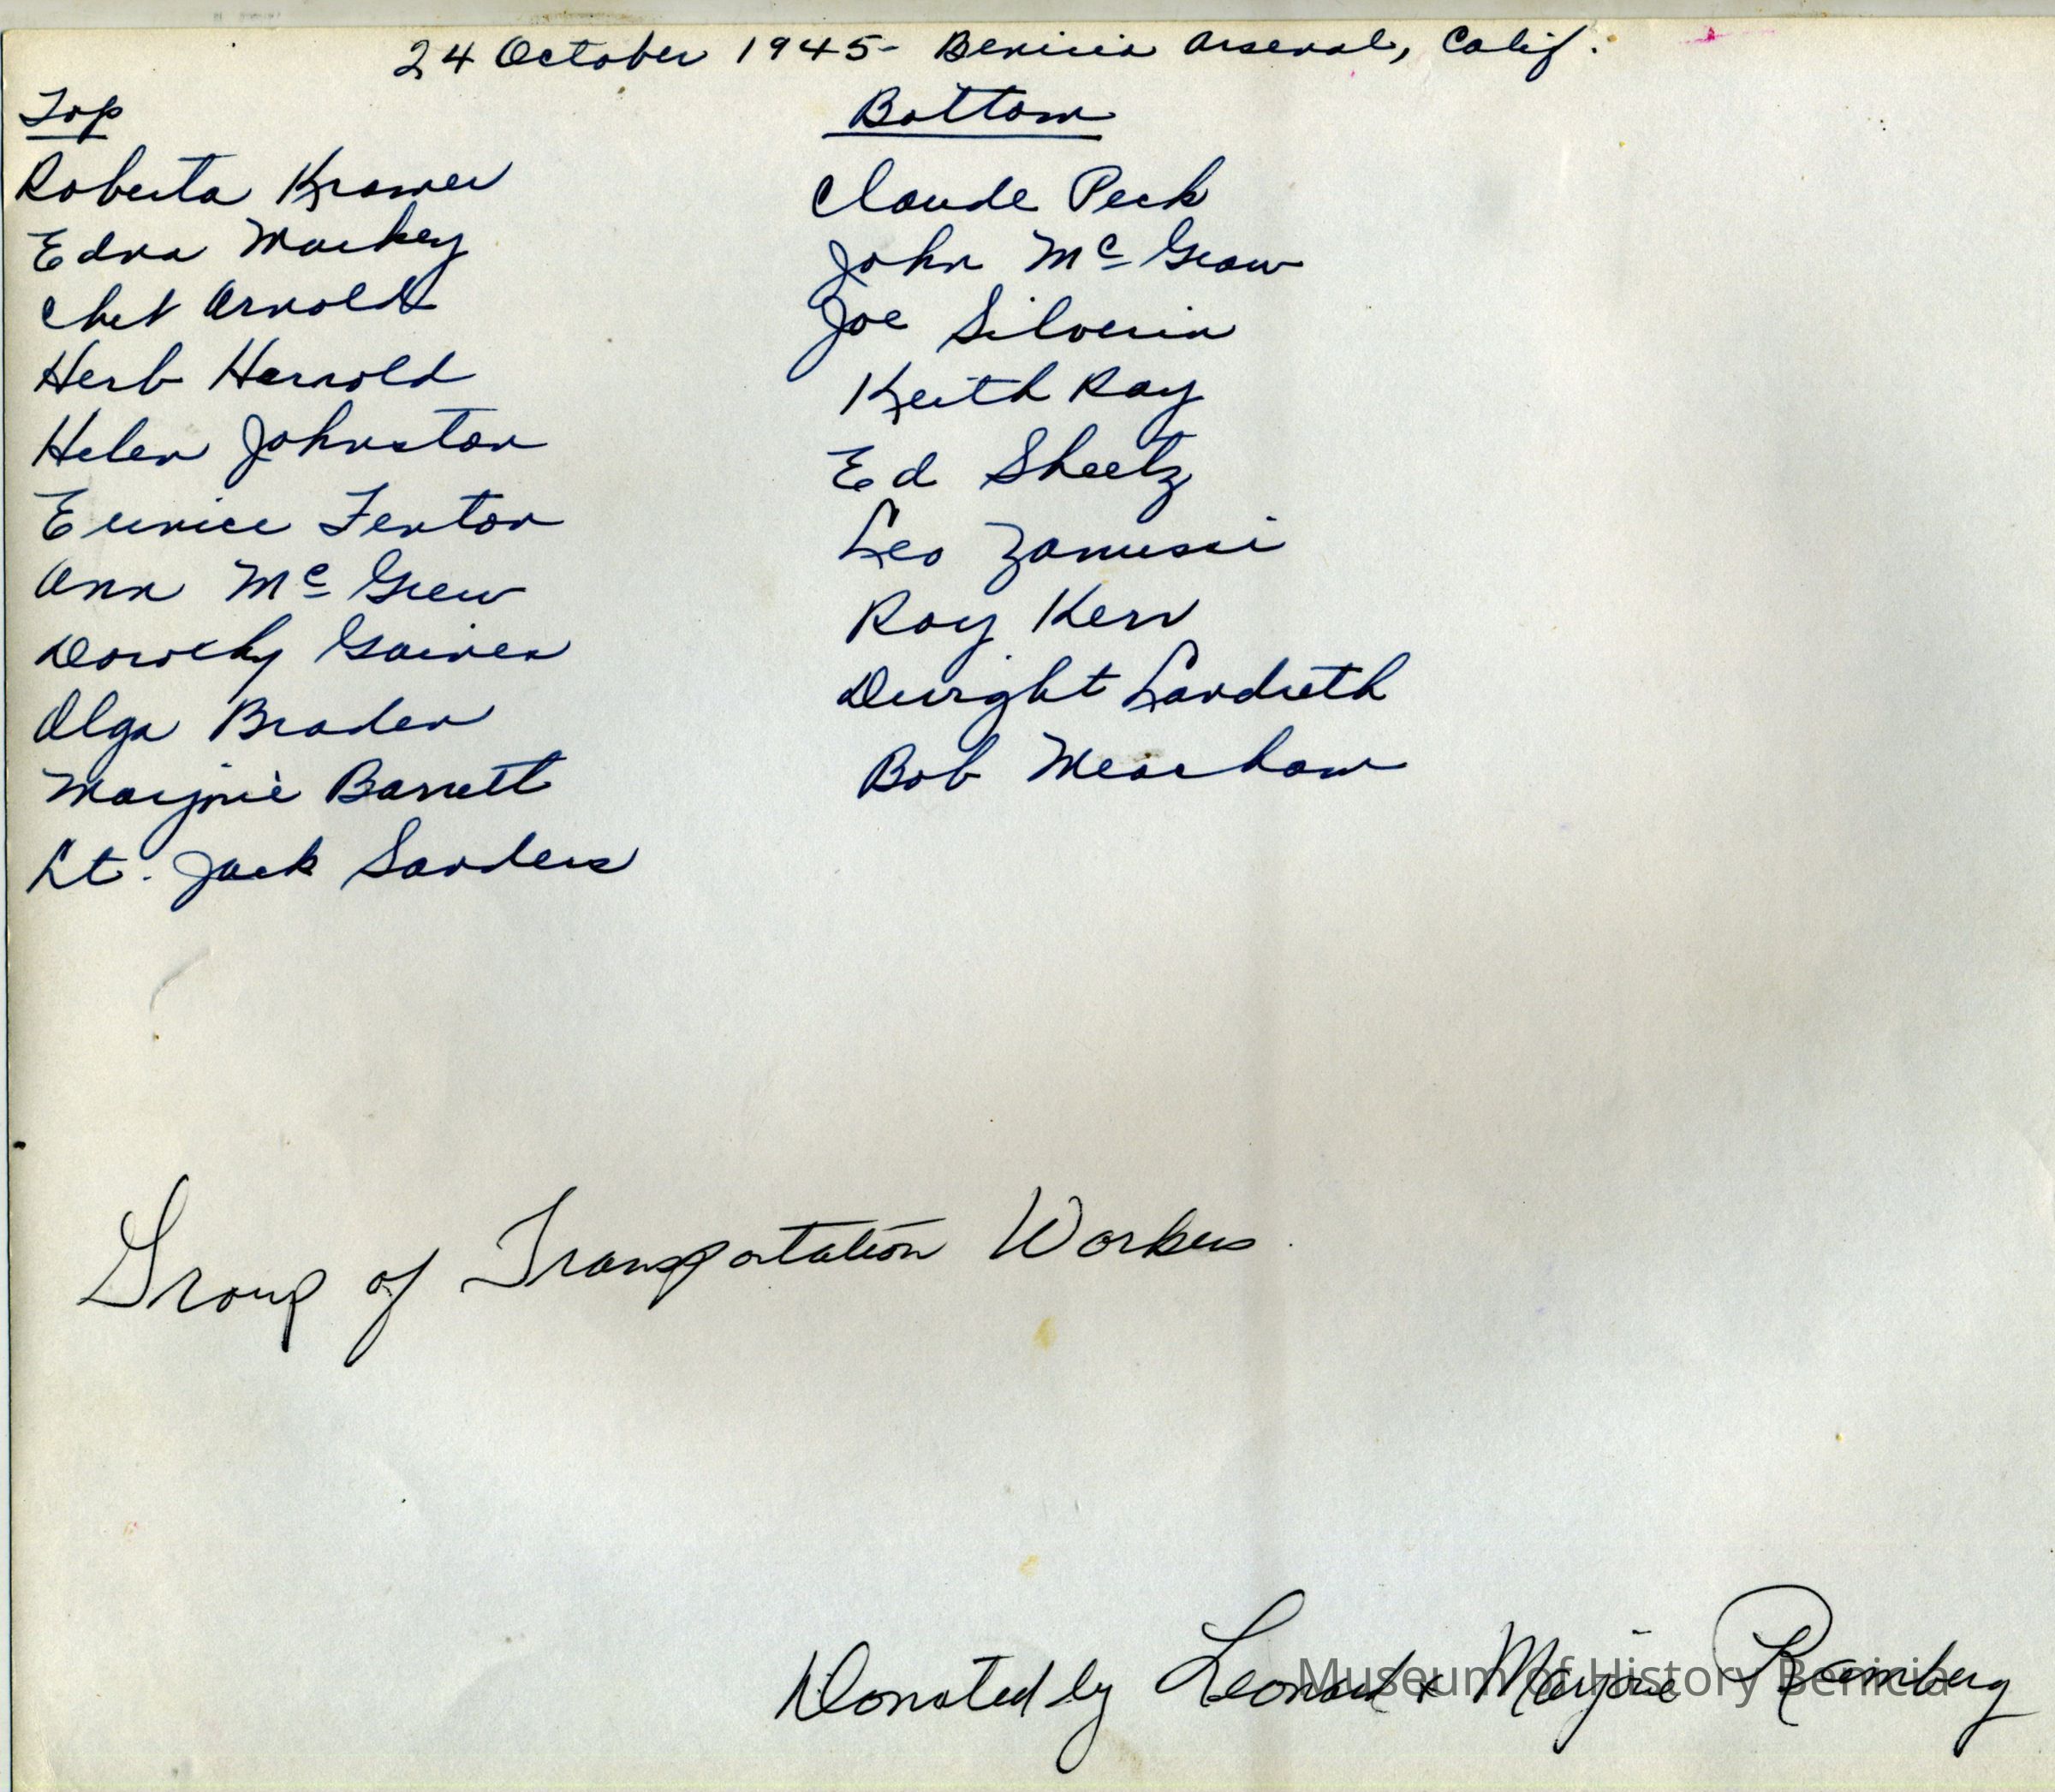 24 October 1945- Benicia Arsenal, Calif.
Top
Roberta Kramer
Edna Mackey
Chet Arnold
Herb Harnold
Helen Johnston
Eunice Fenton
Ann Mc Grew
Dorothy Gaines
Olga Braden
Marjorie Barrett
Lt. Jack Sanders
Bottom
Claude Peck
John Mc Graw
Joe Silveria
Keith Ray
Ed Sheetz
Leo Zanussi
Roy Kerr
Dwight Landreth
Bob Meacham
Group of Transportation Workers
Donated by Leonard & Marjorie Ramberg
Museum of History Benicia